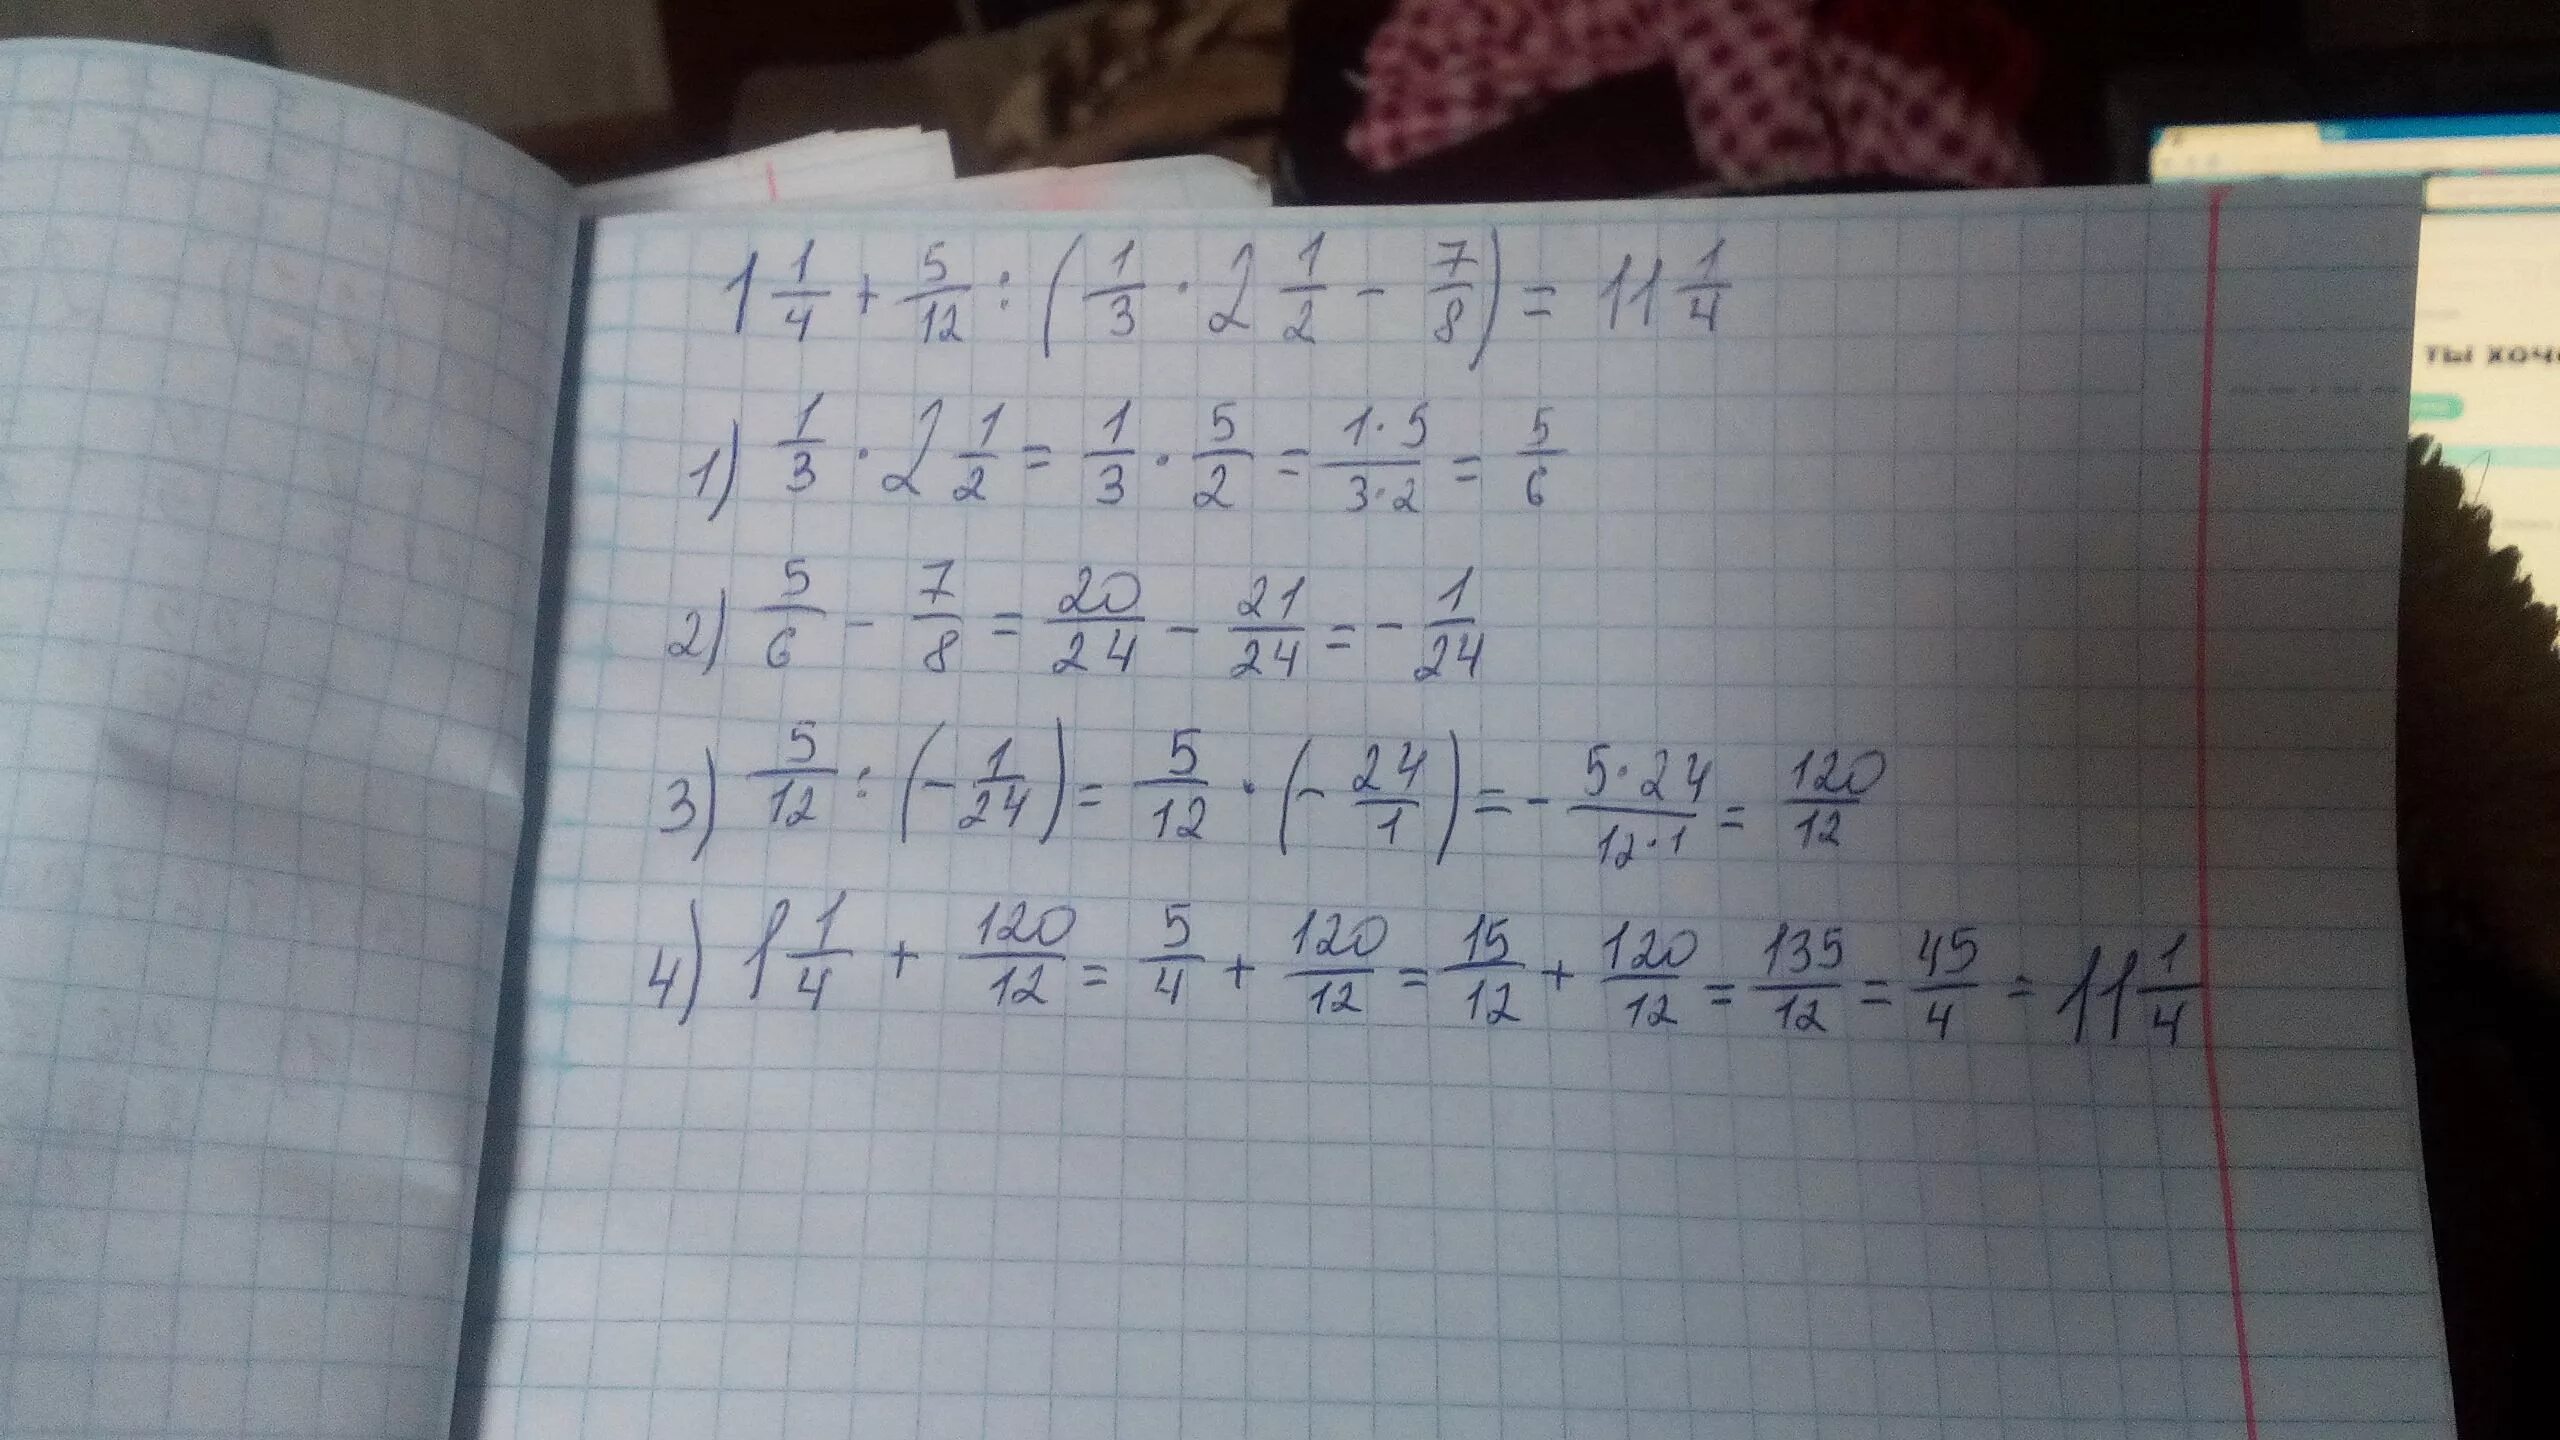 1 1/4 + 5/12 : (1/3 · 2 1/2 - 7/8) = 11 1/4
1) 1/3 · 2 1/2 = 1/3 · 5/2 = 1·5/3·2 = 5/6
2) 5/6 - 7/8 = 20/24 - 21/24 = - 1/24
3) 5/12 : (- 1/24) = 5/12 · (- 24/1) = - 5·24/12·1 = 120/12
4) 1 1/4 + 120/12 = 5/4 + 120/12 = 15/12 + 120/12 = 135/12 = 45/4 = 11 1/4
ты